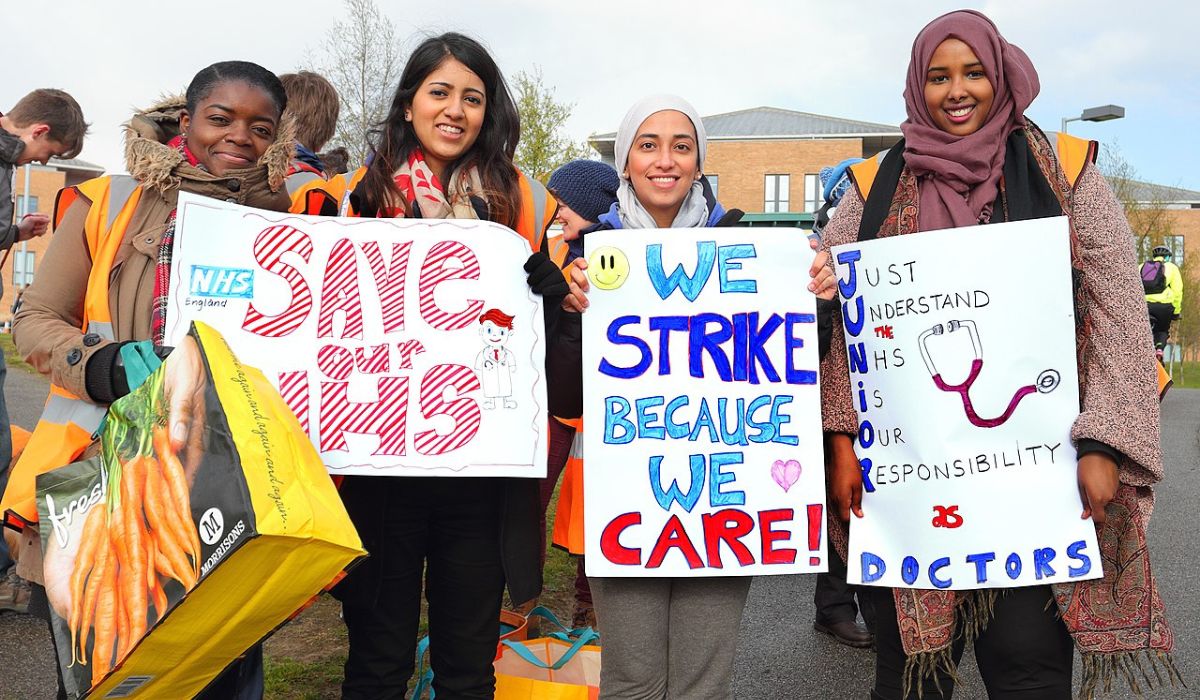 NHS
England
SAVE
our
NHS
WE
STRIKE
BECAUSE
WE
CARE!
JUST
UNDERSTAND
THE
NHS
IS
OUR
RESPONSIBILITY
as
DOCTORS
fresh
M
MORRISONS
again and again and again and again.